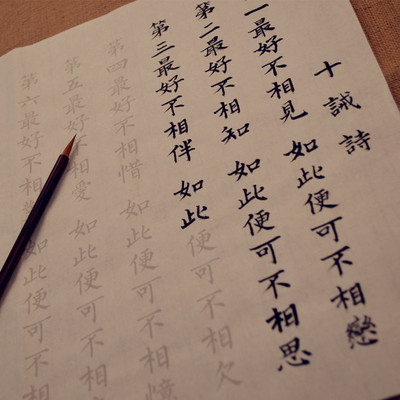 十誡詩
一最好不相見 如此便可不相戀
第二最好不相知 如此便可不相思
第三最好不相伴 如此便可不相欠
第四最好不相惜 如此便可不相憶
第五最好不相愛 如此便可不相
第六最好不相 如此便可不相